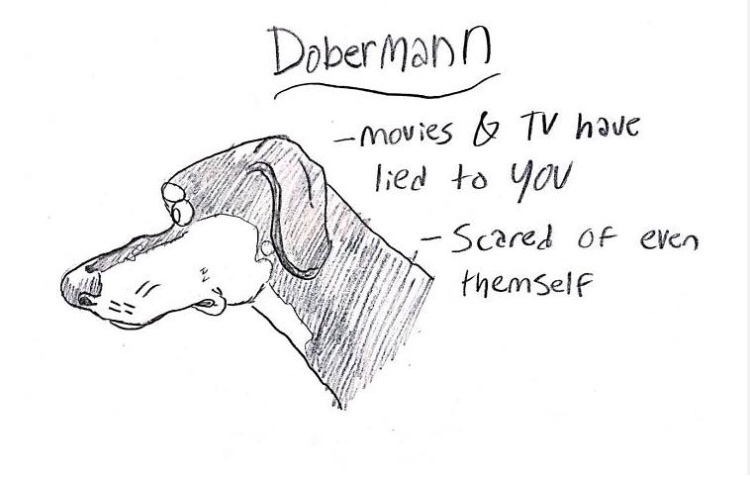 Dobermann
- movies & TV have
lied to you
- Scared of even
themself